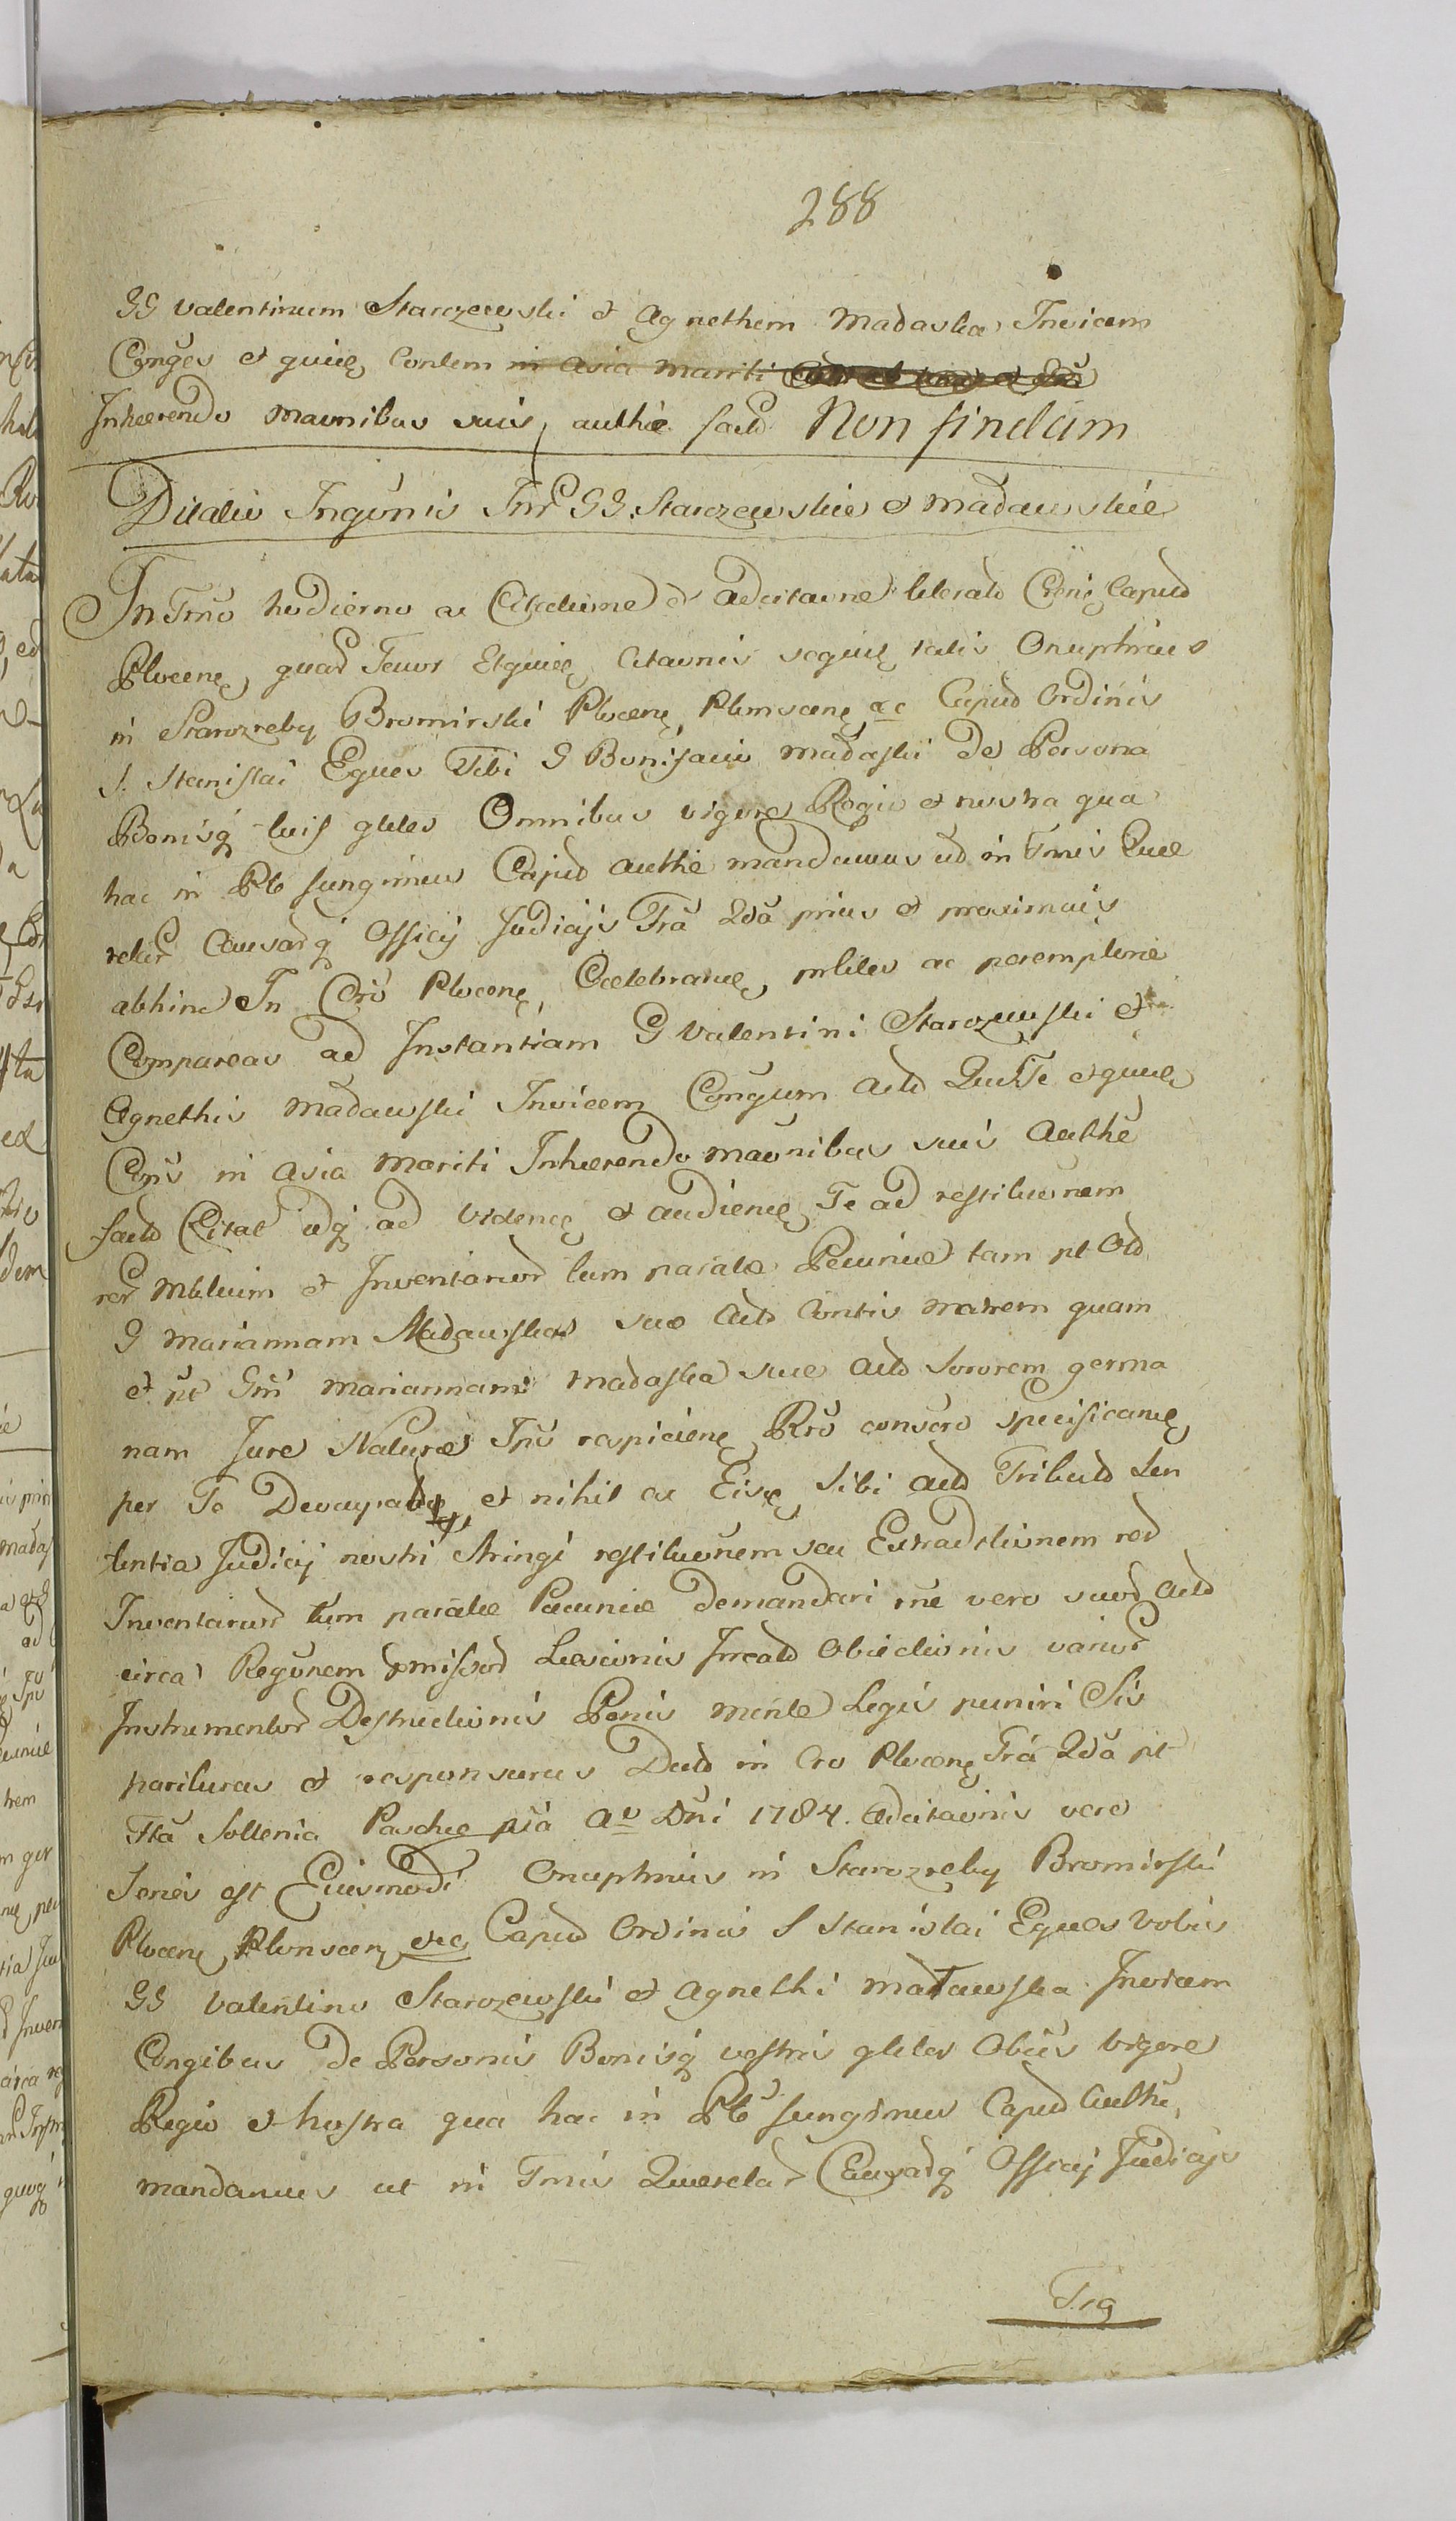 288
GG Valentinum Starczewski et Agnethem Madaska Invicem
Conges et quive Contem in asia mariti
Inhaerendo maonibus suis, authe sactd Non findum
Dilatio Ingonis Inr GG. Starczewskie et Madawskie
In Tmo hodierno ac Citatione et adcitaone literatd Cseni Capnd
Plocen, quard Tenor Etquiee, Citaonis sequie, talis Onuphrius
in Starozreby Bromirski Plocen, Plonscen, ac Capnd Ordinis
S. Stanislai Eques Tibi G Bonifacio Madaski de Persona
Bonisq tuis gtites Omnibus vigore Regia et nostra qua
hac in Pte fungimur Capnd authe mandamus ud in Tmis Que
relar Causarq Officij Judicijs Tra 2da prius et proximais
abhinc In Cro Plocen, Celebrane, prlites ac peremptorie
Compareas ad Instantiam G Valentini Starozewski et
Agnethis Madawski Invicem Congum actd Qui Te etquive
Cojus in asia mariti Inhaerendo maonibus suis authe
sactd Citat idq ad Videne, et audiene, Te ad restituonem
rer Mbtium et Inventariord tum parate Pecunie tam pt Old
G Mariannam Madawska sue actd Contis matrem quam
et pt Gm Mariannam Madaska sue actd Sororem germa
nam Jure Nature Ipis respiciene, Rro conscro specificane,
per Te Deoccupatd, et nihil ex Eise, Sibi actd Tributd Sen
tentia Judicij nostri Stringi restituonem seu Extraditionem rerd
Inventariord tum parate Pecunie demandari rne vero suord actd
circa Regonem pmissord Laesionis Jrcatd Obiectionis variord
Instrumentord Destructionis Penis mente Legis puniri Sis
pariturus et responsurus Datd in Cro Plocen, Tra 2da pt
Fta Sollenia Pasche pia Ao Dni 1784. Adcitaonis vero
Series est Eiusmodi Onuphrius in Starozreby Bromirski
Plocen, Plonscen, etc, Capnd Ordinis S Stanislai Eques Vobis
GG Valentino Starozewski et Agnethi Madawska Invicem
Congibus De Personis Bonisq vestris gtites Obus vigore
Regia et nostra qua hac in Pte fungimur Capnd authe,
mandamus ut in Tmis Querelar Causarq Officij Judicijs
Tra